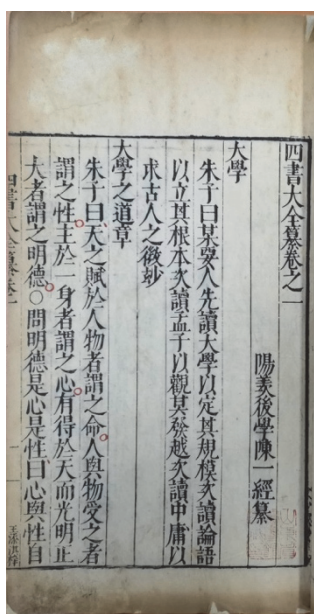 四書大全纂卷之一
陽羨後學陳一經纂
大學
朱子曰某要人先讀大學以定其規模次讀論語
以立其根本次讀孟子以觀其發越次讀中庸以
求古人之微妙
大學之道章
朱子曰天之賦於人物者謂之命人與物受之者
謂之性主於一身者謂之心有得於天而光明正
大者謂之明德○問明德是心是性曰心與性自
四書大全纂卷一